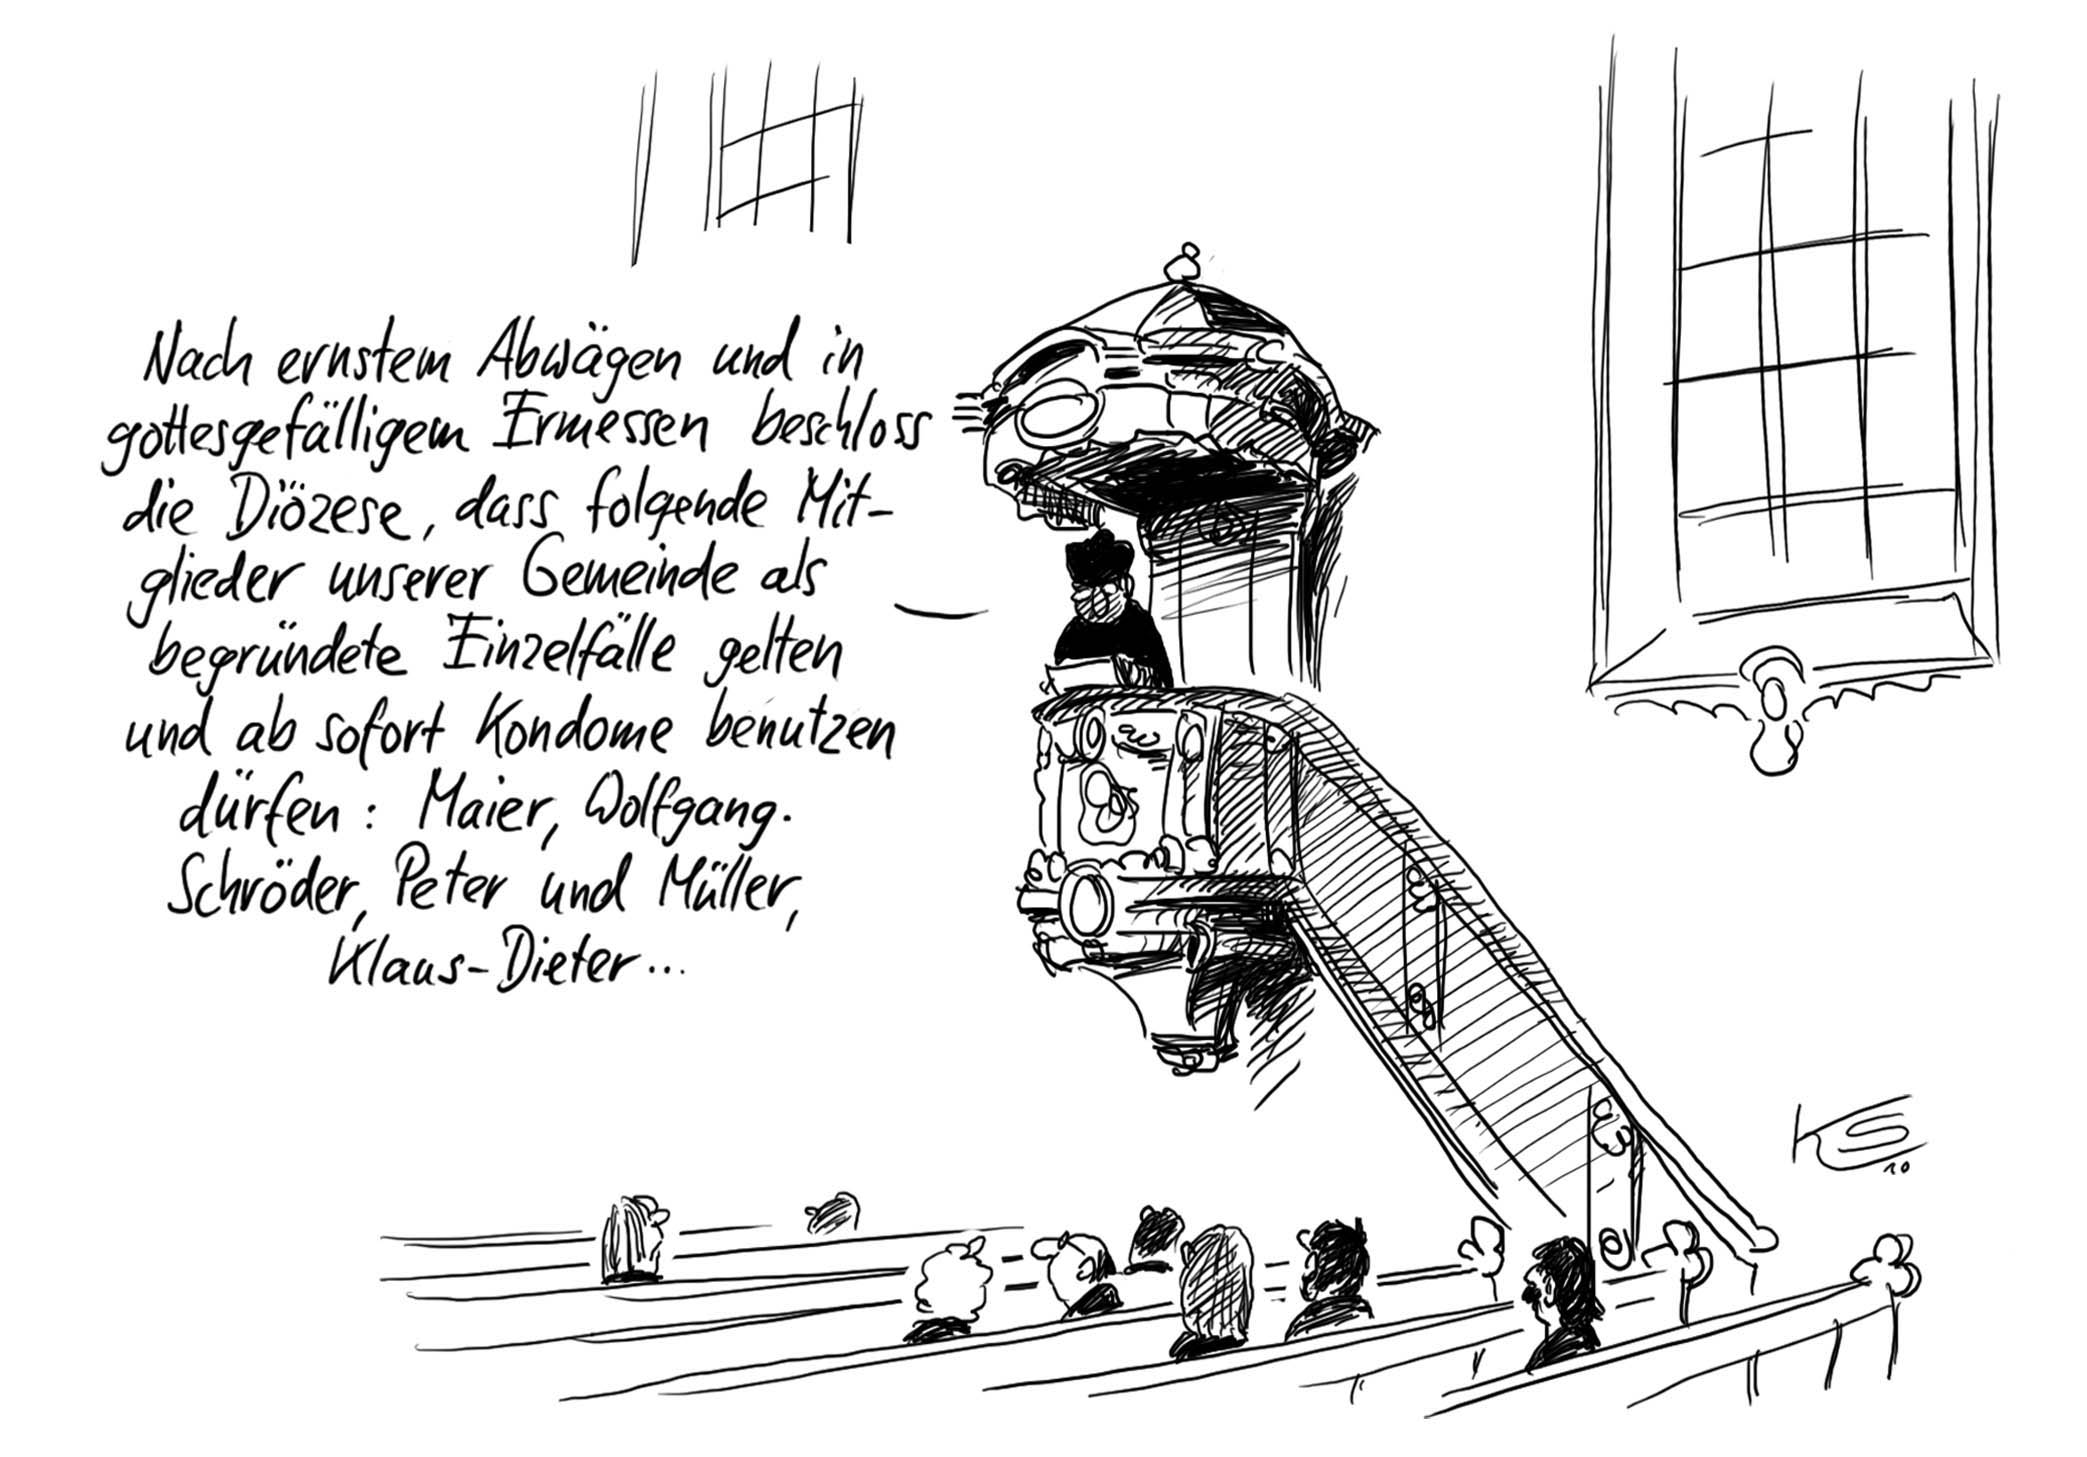 Nach ernstem Abwägen und in
gottesgefälligem Ermessen beschloss
die Diözese, dass folgende Mit-
glieder unserer Gemeinde als
begründete Einzelfälle gelten
und ab sofort Kondome benutzen
dürfen: Maier, Wolfgang.
Schröder, Peter und Müller,
Klaus-Dieter...
KS
10